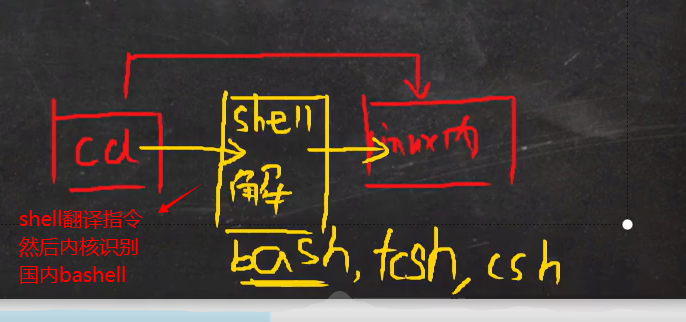 shell
cd
linux内
解
shell翻译指令
然后内核识别
国内bashell
bash, tcsh, csh